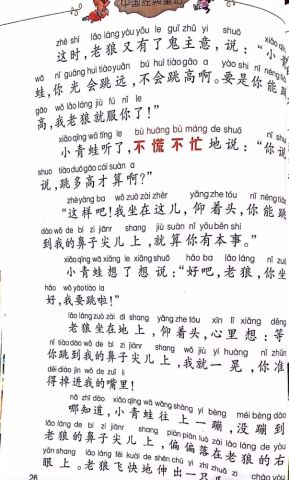 中国经典童话
zhè shí lǎo láng yòu yǒu le guǐ zhǔ yi shuō
这时,老狼又有了鬼主意,说:“小青
wā nǐ guāng huì tiào yuǎn bú huì tiào gāo a yào shi nǐ néng
蛙,你光会跳远,不会跳高啊。要是你能跳
gāo wǒ lǎo láng jiù fú nǐ le
高,我老狼就服你了!”
xiǎo qīng wā tīng le bù huāng bù máng de shuō nǐ shuō
小青蛙听了,不慌不忙地说:“你说
shuō tiào duō gāo cái suàn a
说,跳多高才算啊?”
zhè yàng ba wǒ zuò zài zhèr yǎng zhe tóu nǐ néng tiào
“这样吧!我坐在这儿,仰着头,你能跳
dào wǒ de bí zi jiānr shang jiù suàn nǐ yǒu běn shi
到我的鼻子尖儿上,就算你有本事。”
xiǎo qīng wā xiǎng le xiǎng shuō hǎo ba lǎo láng nǐ zuò
小青蛙想了想说:“好吧,老狼,你坐
hǎo wǒ yào tiào la
好,我要跳啦!”
lǎo láng zuò zài dì shang yǎng zhe tóu xīn lǐ xiǎng děng
老狼坐在地上,仰着头,心里想:等
nǐ tiào dào wǒ de bí zi jiānr shang wǒ jiù yì huàng nǐ zhǔn
你跳到我的鼻子尖儿上,我就一晃,你准
děi diào jìn wǒ de zuǐ li
得掉进我的嘴里!
nǎ zhī dào xiǎo qīng wā wǎng shàng yí bèng méi bèng dào
哪知道,小青蛙往上一蹦,没蹦到
lǎo láng de bí zi jiānr shang piān piān luò zài lǎo láng de yòu
老狼的鼻子尖儿上,偏偏落在老狼的右
yǎn shang lǎo láng fēi kuài de shēn chū yì zhī zhuǎ zi cháo yòu
眼上。老狼飞快地伸出一只
26